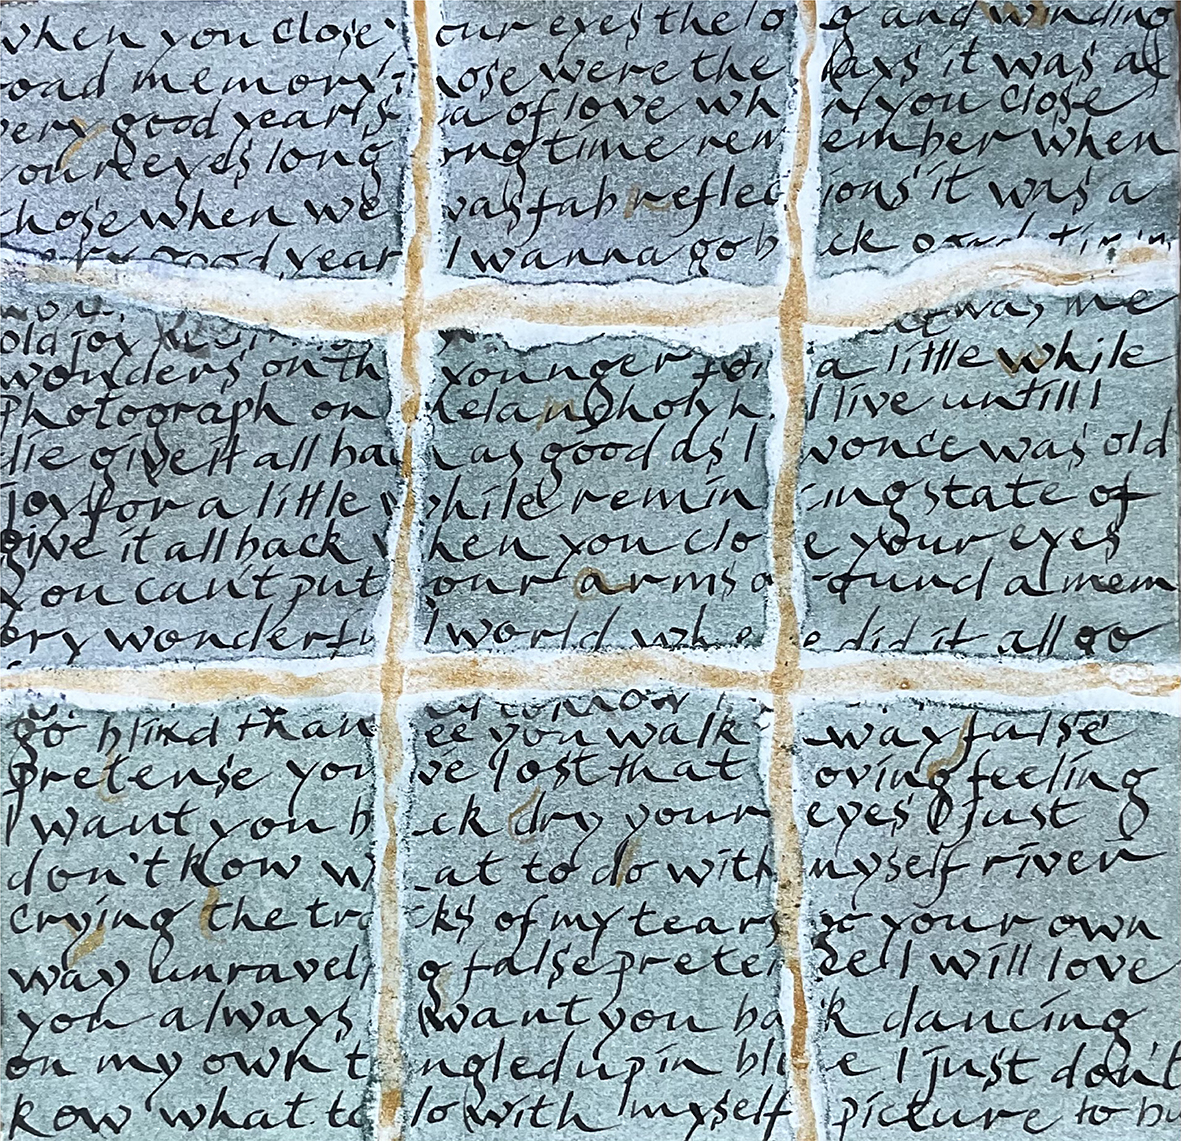 when you close your eyes the lo g and winding
oad memory hose were the days it was a
very good year s a of love wh n you close
our eyes long ong time rem ember when
hose when we was fab reflec ions it was a
ery good year I wanna go b ck good
was me
old joy
wonders on th younger for a little while
Photograph on melancholy h I live untill I
die give it all back as good as I wonce was old
joy for a little while remin cing state of
give it all back when you clo e your eyes
you can't put your arms a ound a mem
ory wonderfu l world whe e did it all go
go blind than ee you walk away false
pretense you ve lost that oving feeling
I want you b ck dry your eyes I just
don't kow w at to do with myself river
crying the tra cks of my tears go your own
way unravel g false preten ce I will love
you always I want you ba k dancing
on my own t ngled up in bl e I just don't
kow what to do with myself picture to bu